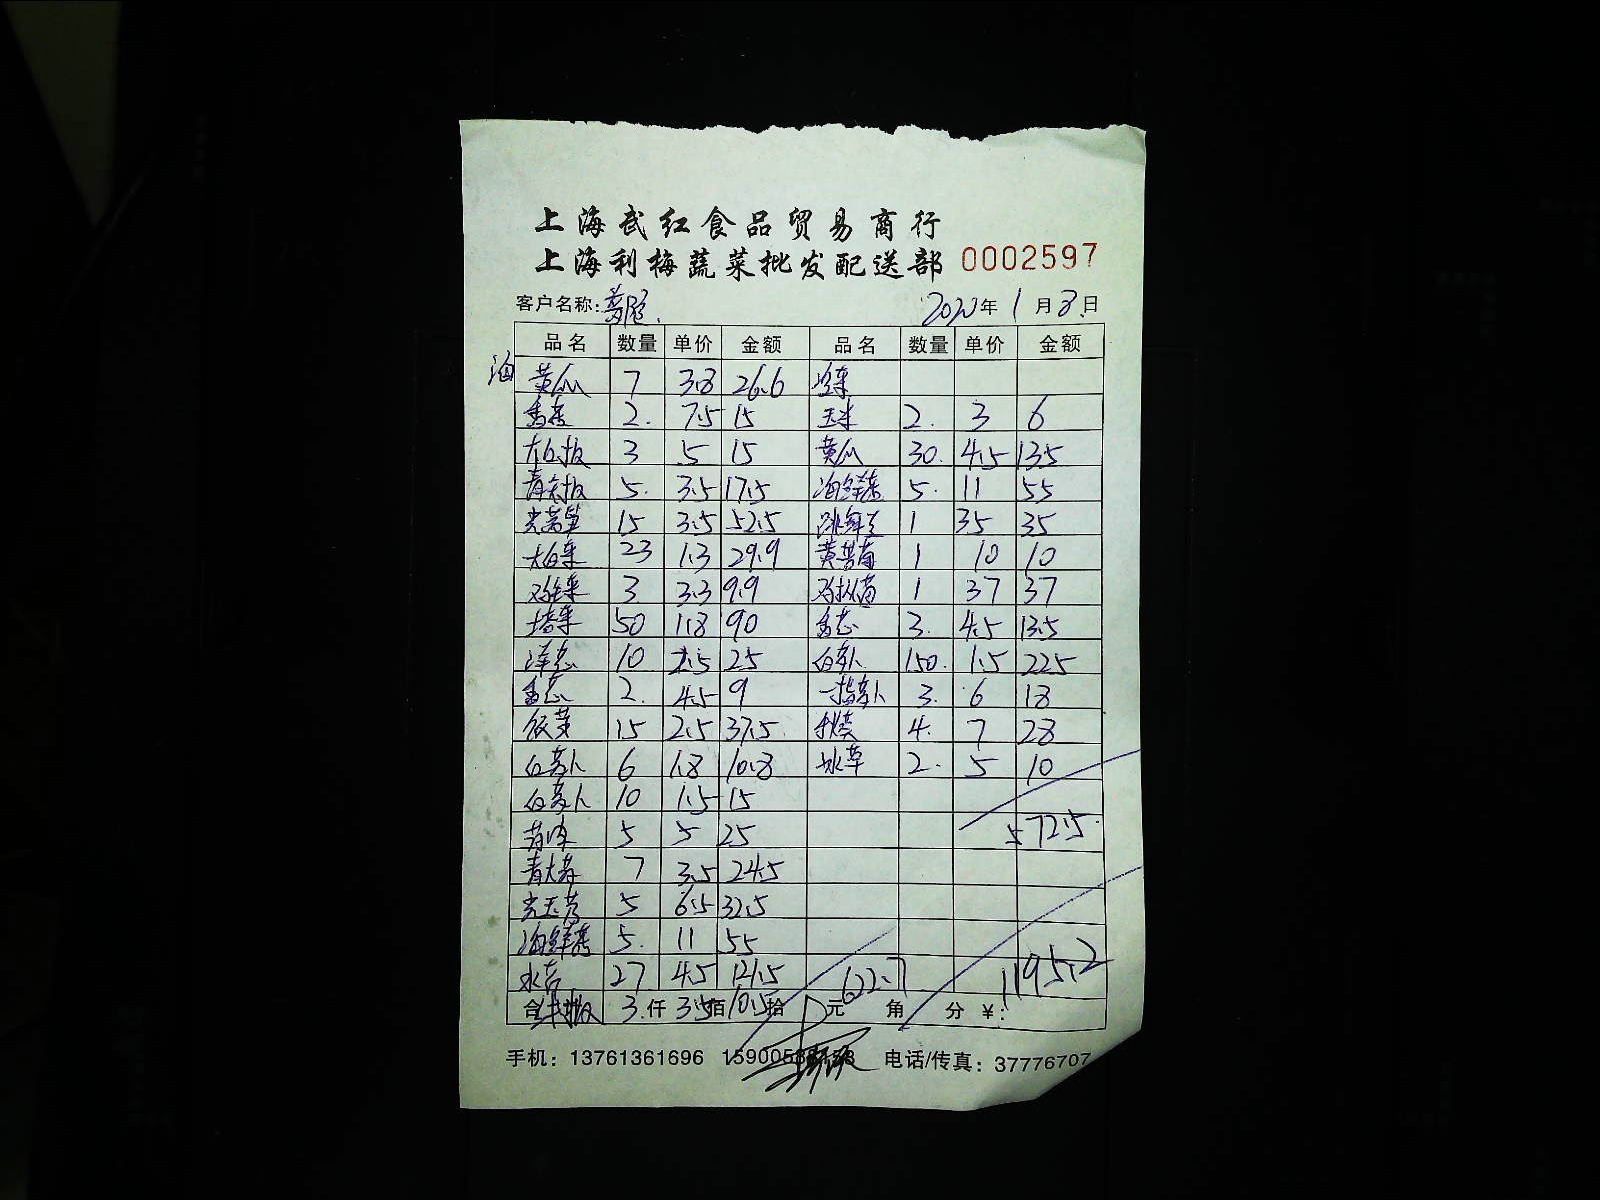 上海武红食品贸易商行
上海利梅蔬菜批发配送部 0002597
客户名称: 2020年1月8日
品名 数量 单价 金额 品名 数量 单价 金额
海
黄瓜 7 3.8 26.6
香菜 2. 7.5 15 玉米 2. 3 6
大红椒 3 5 15 黄瓜 30. 4.5 135
青尖椒 5. 3.5 17.5 海鲜菇 5. 11 55
光莴笋 15 3.5 52.5 1 35 35
大白菜 23 1.3 29.9 1 10 10
3 3.3 9.9 鸡枞菌 1 37 37
塔菜 50 1.8 90 香葱 3. 4.5 13.5
洋葱 10 2.5 25 白萝卜 150. 1.5 225
香葱 2. 4.5 9 一指萝卜 3. 6 18
银芽 15 2.5 37.5 4. 7 28
6 1.8 10.8 冰草 2. 5 10
白萝卜 10 1.5 15
5 5 25 572.5
7 3.5 24.5
5 6.5 32.5
海鲜菇 5. 11 55
27 4.5 121.5 622.7 1195.2
合 3. 仟 3.5 佰 10.5 拾 元 角 分 ¥:
手机: 13761361696 电话/传真: 37776707